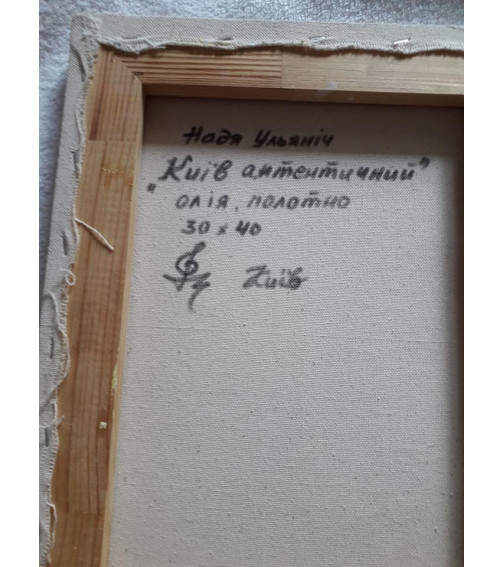 Надя Ульяніч
"Київ антентичний"
олія, полотно
30 x 40
Київ